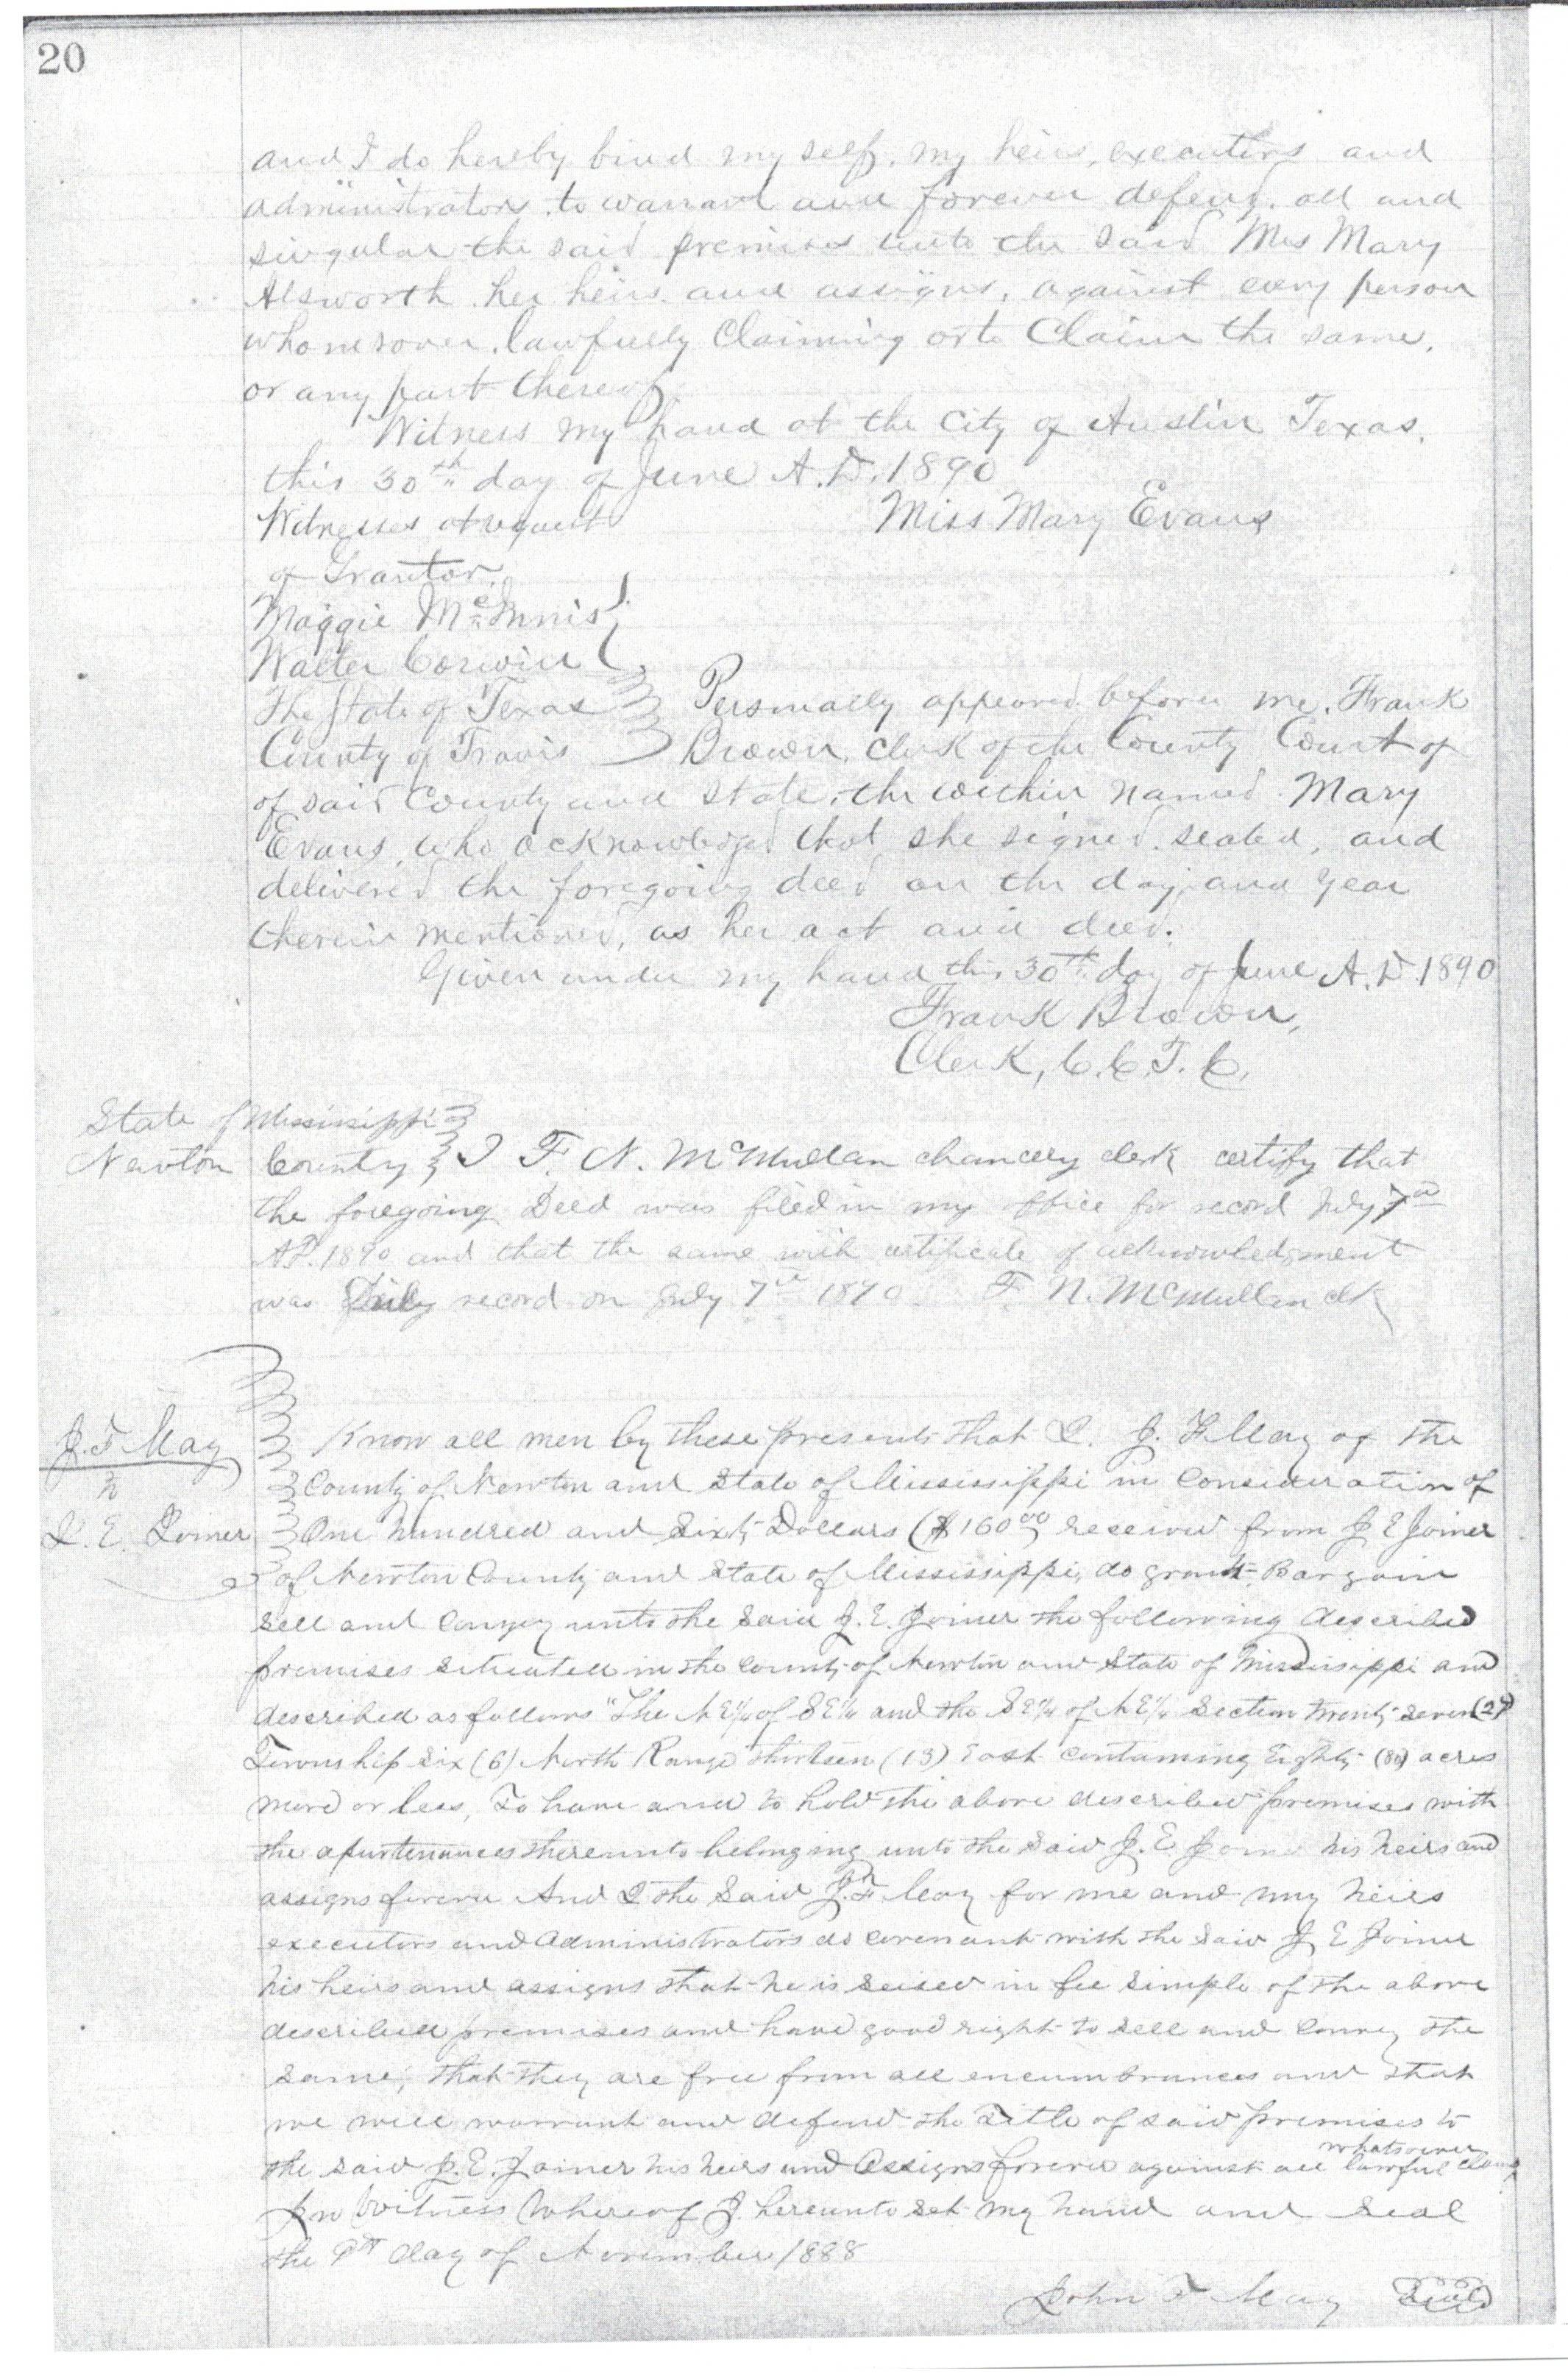 20
and I do hereby bind my self, my heirs, executors and
administrators, to warrant and forever defend, all and
singular the said premises unto the said Mrs Mary
Alsworth her heirs and assigns, against every person
whomsover, lawfully Claiming or to Claim the same,
or any part thereof.
Witness my hand at the City of Austin Texas,
this 30th day of June A.D. 1890
Witnesses at request Miss Mary Evans
of Grantor.
Maggie McInnis
Walter Corwin
The State of Texas Personally appeared before me, Frank
County of Travis Brown, Clerk of the County Court of
of said County and State, the within named Mary
Evans, who acknowledged that she signed, sealed, and
delivered the foregoing deed on the day and year
therein mentioned, as her act and deed.
Given under my hand this 30th day of June A.D. 1890
Frank Brown,
Clerk, C.C.T.C.
State of Mississippi
Newton County I F. N. McMullan chancery clerk certify that
the foregoing Deed was filed in my office for record July 7th
AD. 1890 and that the same with certificate of acknowledgment
was Duly record on July 7th 1890. F. N. McMullan clk
J. F. May Know all men by these presents that I. J. F. May of the
County of Newton and State of Mississippi in Consideration of
J. E. Joiner One hundred and Sixty Dollars ($160.00) received from J E Joiner
of Newton County and State of Mississippi, do grant, Bargain
Sell and Convey unto the Said J. E. Joiner the following described
premises situated in the County of Newton and State of Mississippi and
described as follows "The NE¼ of SE¼ and the SE¼ of NE¼ Section twenty-seven (27)
Township six (6) North Range thirteen (13) East containing Eighty (80) acres
more or less, To have and to hold the above described premises with
the apurtenances thereunto belonging unto the said J. E Joiner his heirs and
assigns forever And I the Said J. F. May for me and my heirs
executors and administrators do covenant with the said J E Joiner
his heirs and assigns that he is seised in fee simple of the above
described premises and have good right to sell and convey the
same; that they are free from all encumbrances and that
we will warrant and defend the Title of said premises to
whatsoever
the said J. E. Joiner his heirs and Assigns forever against all lawful claims
In Witness Whereof I hereunto set my hand and seal
the 9th day of November 1888
John F May Seal